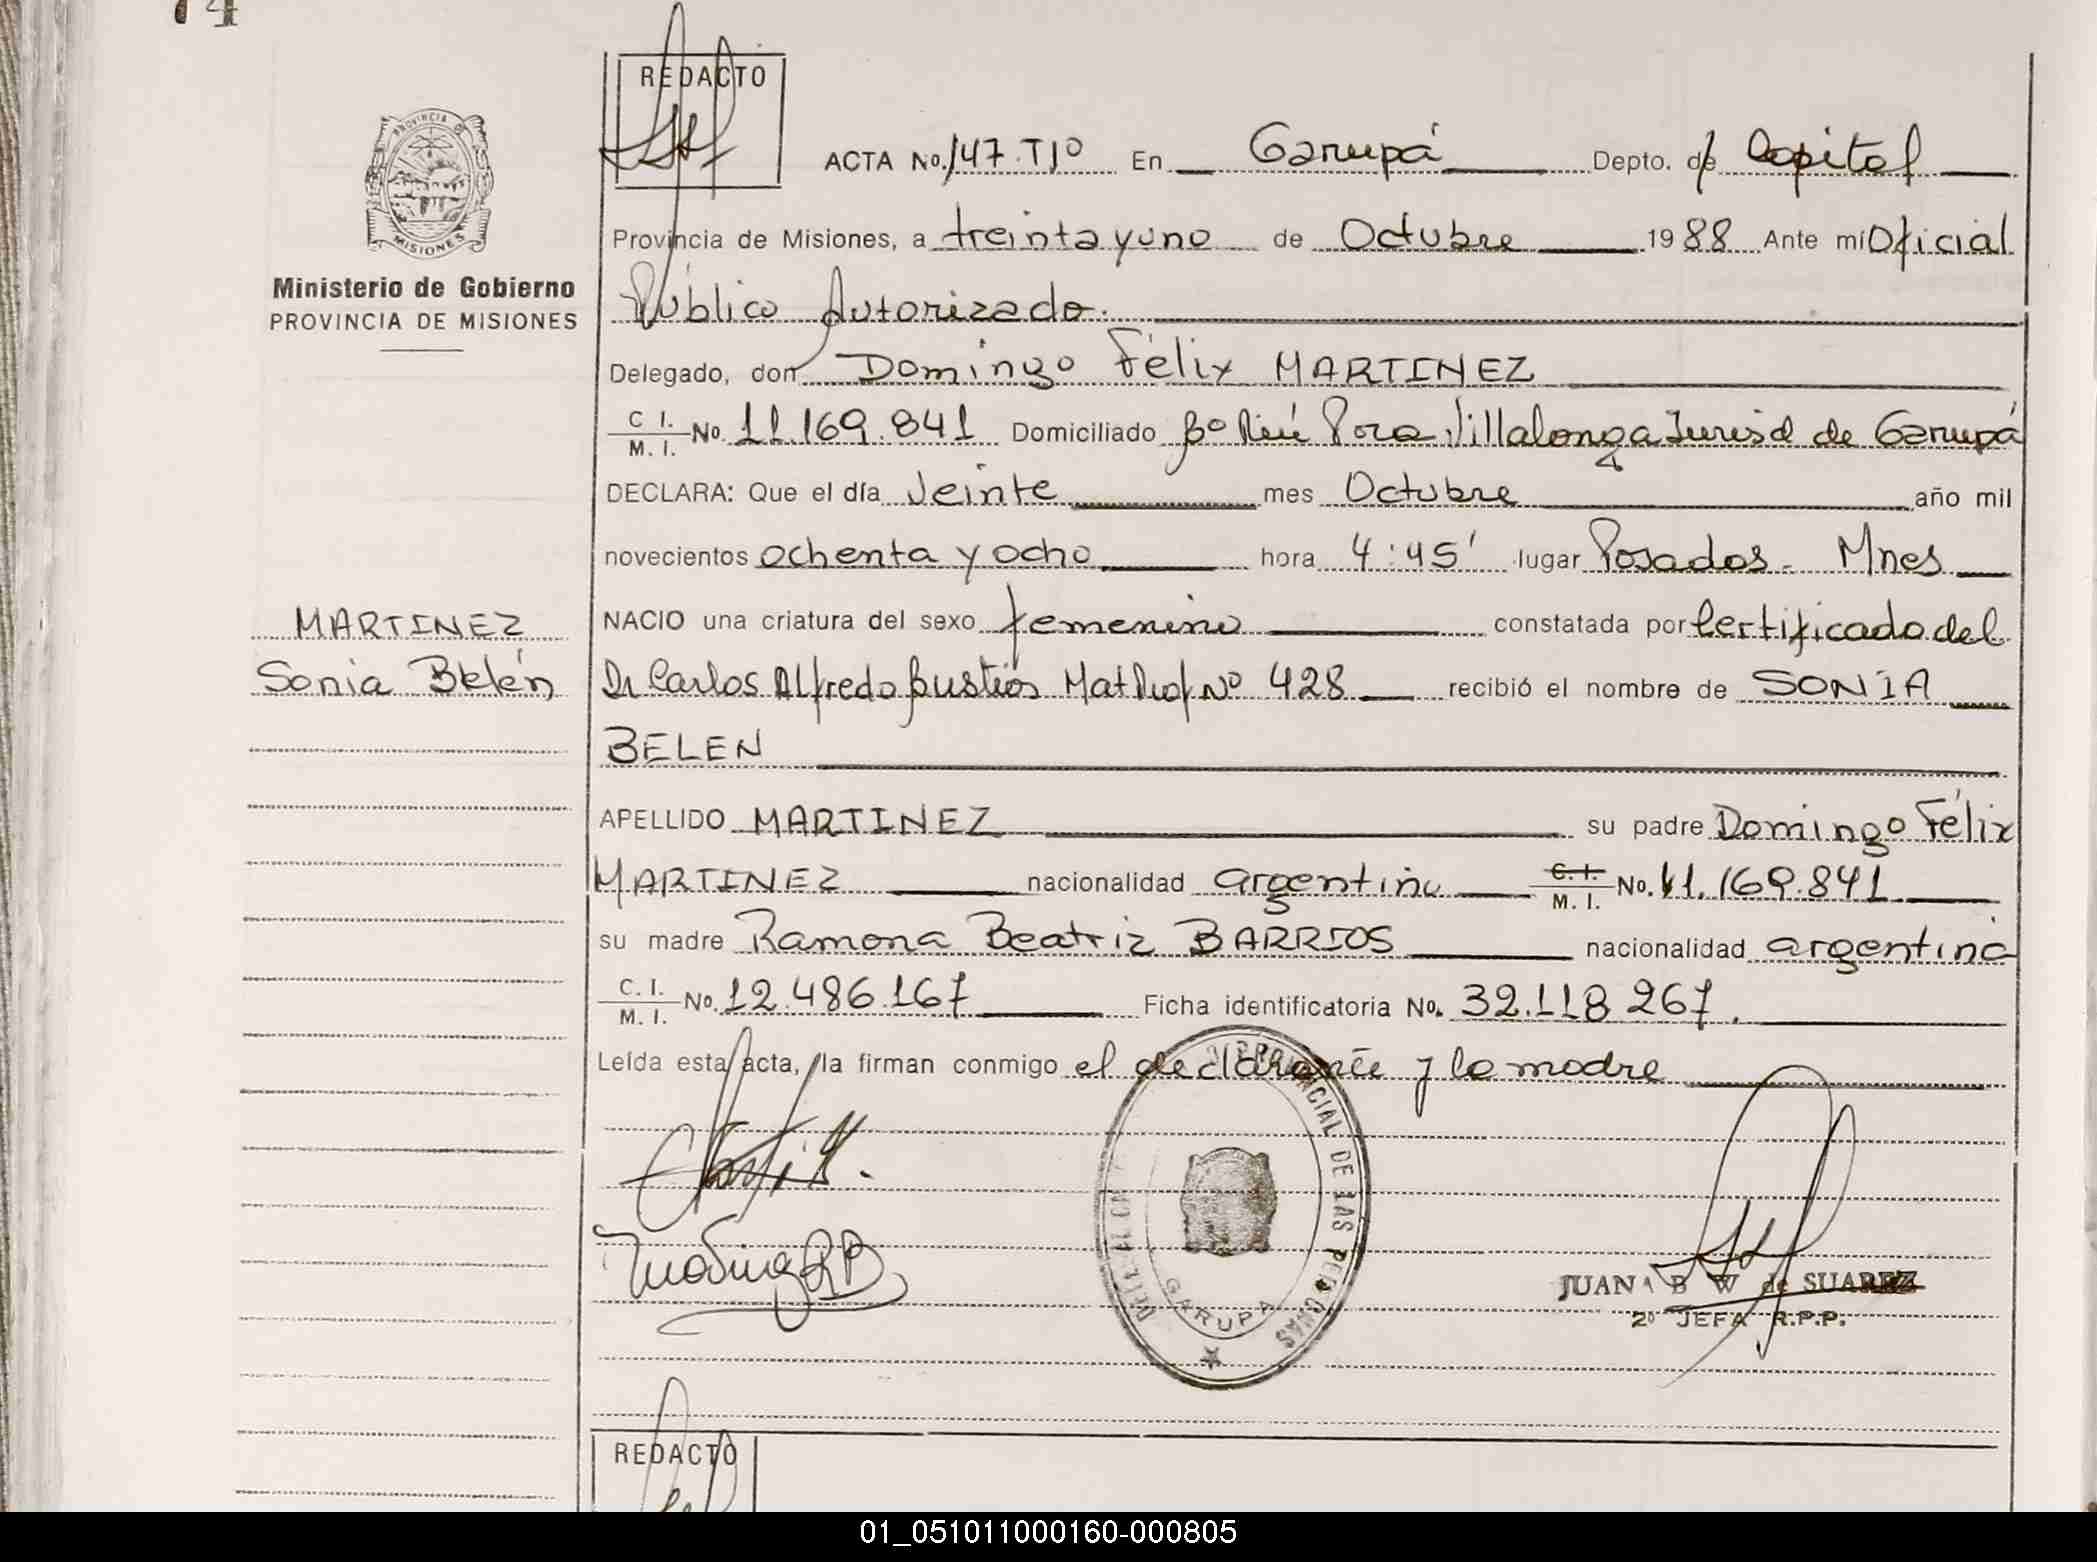 74
REDACTO
PROVINCIA DE
MISIONES
Ministerio de Gobierno
PROVINCIA DE MISIONES
ACTA No. 147.T1º En Garupá Depto. de Capital
Provincia de Misiones, a treinta y uno de Octubre 1988 Ante mí Oficial
Público Autorizado.
Delegado, don Domingo Félix MARTINEZ
C I. M. I. No. 11.169.841 Domiciliado Bº Ñú Porá Villalonga Jurisd de Garupá
DECLARA: Que el día Veinte mes Octubre año mil
novecientos ochenta y ocho hora 4:45' lugar Posadas - Mnes
MARTINEZ
Sonia Belén
NACIO una criatura del sexo femenino constatada por Certificado del
Dr Carlos Alfredo Bustios Mat Prof Nº 428 recibió el nombre de SONIA
BELEN
APELLIDO MARTINEZ su padre Domingo Félix
MARTINEZ nacionalidad argentino C.I. M. I. No. 11.169.841
su madre Ramona Beatriz BARRIOS nacionalidad argentina
C. I. M. I. No. 12.486.167 Ficha identificatoria No. 32.118.267.
Leída esta acta, la firman conmigo el declarante y la madre
PROVINCIAL DE LAS PERSONAS
GARUPA
JUANA B W de SUAREZ
2º JEFA R.P.P.
REDACTO
01_051011000160-000805